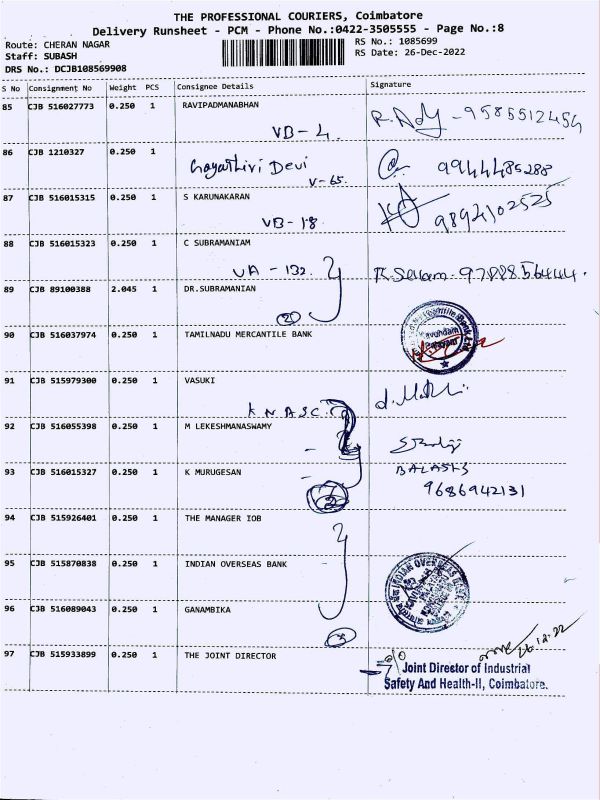 THE PROFESSIONAL COURIERS, Coimbatore
Delivery Runsheet - PCM - Phone No.:0422-3505555 - Page No.:8
Route: CHERAN NAGAR
RS No.: 1085699
Staff: SUBASH
RS Date: 26-Dec-2022
DRS No.: DCJB108569908
S No Consignment No Weight PCS Consignee Details Signature
85 CJB 516027773 0.250 1 RAVIPADMANABHAN
VB-4 9585512454
86 CJB 1210327 0.250 1
Gayathiri Devi 9944485288
V-65
87 CJB 516015315 0.250 1 S KARUNAKARAN
VB-18 9894102525
88 CJB 516015323 0.250 1 C SUBRAMANIAM
VA-132
89 CJB 89100388 2.045 1 DR.SUBRAMANIAN
2
90 CJB 516037974 0.250 1 TAMILNADU MERCANTILE BANK
91 CJB 515979300 0.250 1 VASUKI
KNASC
92 CJB 516055398 0.250 1 M LEKESHMANASWAMY
93 CJB 516015327 0.250 1 K MURUGESAN
9686942131
2
94 CJB 515926401 0.250 1 THE MANAGER IOB
95 CJB 515870838 0.250 1 INDIAN OVERSEAS BANK
INDIAN OVERSEAS BANK
96 CJB 516089043 0.250 1 GANAMBIKA
3
26.12.22
97 CJB 515933899 0.250 1 THE JOINT DIRECTOR
Joint Director of Industrial
Safety And Health-II, Coimbatore.